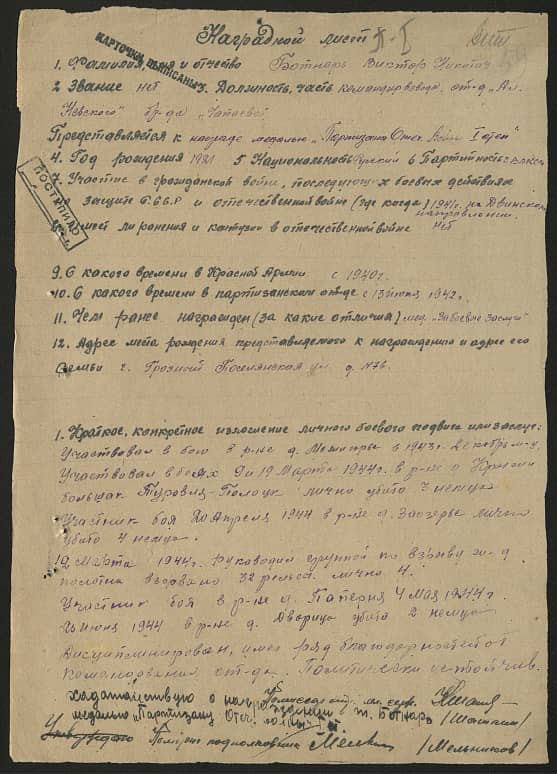 Наградной лист
КАРТОЧКИ ВЫПИСАНЫ
1. Фамилия, имя и отчество Ботнарь Виктор
2 Звание нет 3. Должность, часть командир взвода, от-д Ал.
Невского бр-да "Чапаева"
Представляется к награде медалью "Партизану Отеч. Войны I степ"
4. Год рождения 1921 5 Национальность русский 6 Партийность: влксм
7. Участие в гражданской войне, последующих боевых действиях
по защите С.С.С.Р и отечественной войне (где когда) 1941г. на Двинском
направлении.
ПОСТУПИЛ
8. Имеет ли ранения и контузии в отечественной войне нет
9. С какого времени в Красной Армии с 1940г.
10. С какого времени в партизанском от-де с 13 июня 1942г.
11. Чем ранее награжден (за какие отличия) мед. "За боевые заслуги"
12. Адрес места рождения представляемого к награждению и адрес его
семьи г. Грозный Поселянская ул д. №76.
1. Краткое, конкретное изложение личного боевого подвига или заслуг:
Участвовал в бою в р-не д. в 1943г. декабрь м-ц.
Участвовал в боях 9 и 19 Марта 1944г. в р-не д.
большак Туровля-Полоцк лично убито 3 немца
Участник боя 20 Апреля 1944 в р-не д. Заозерье лично
убито 4 немца.
12 Марта 1944г. руководил группой по взрыву ж-д
полотна взорвано 32 рельса. лично 4.
Участник боя в р-не д. Паперня 4 Мая 1944г.
июня 1944 в р-не д. Дворица убито 2 немца
Дисциплинирован, имел ряд благодарностей от
командования от-да. Политически устойчив.
ходатайствую о награждении
медалью "Партизану Отеч. войны" т. Ботнарь
Утверждаю подполковник /Мельников/